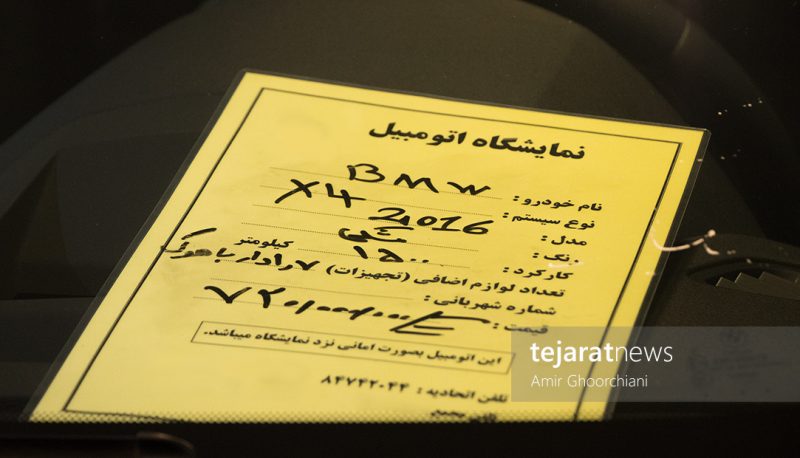 نمایشگاه اتومبیل
نام خودرو : BMW
نوع سیستم : X4
مدل : 2016
رنگ : مشکی
کارکرد : ۱۵۰۰ کیلومتر
تعداد لوازم اضافی (تجهیزات) ۷ رادار با هوک
شماره شهربانی :
قیمت : ۷۲۰/۰۰۰/۰۰۰
این اتومبیل بصورت امانی نزد نمایشگاه میباشد.
تلفن اتحادیه : ۸۴۷۴۲۰۴۴
tejaratnews
Amir Ghoorchiani